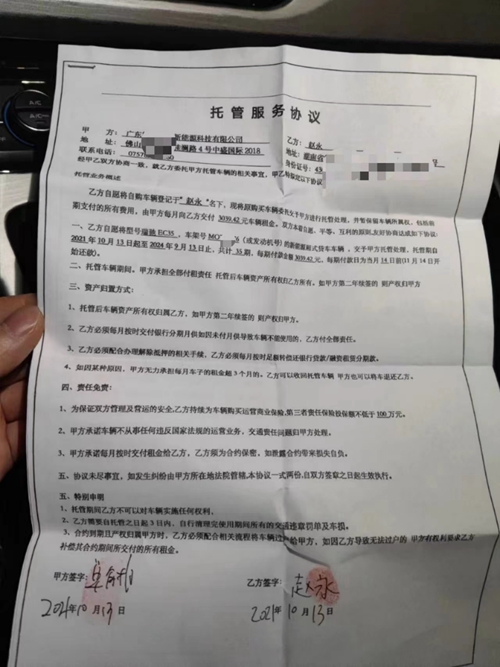 托管服务协议
甲 方：广东 新能源科技有限公司
地 址：佛山 澜路 4 号中盛国际 2018
联系电话：0757
乙方：赵永
地址：湖南省
身份证号：43
经甲乙双方协商一致，就乙方委托甲方托管车辆的相关事宜，甲乙特签此以下协议
托管业务概述
乙方自愿将自购车辆登记于“赵永”名下，现将原购买车辆委托交予甲方进行托管处理，并暂保留车辆所属权，包括前
期支付的所有费用，由甲方每月向乙方交付 3039.42 元车辆租金。双方本着自愿、平等、互利的原则友好协商达成如下协议：
一、乙方自愿将自购车型瑞驰 EC35，车架号 MO （或发动机号）的新能源厢式货车车辆，交予甲方托管处理，托管期自
2021 年 10 月 13 日起至 2024 年 9 月 13 日止，共计 35 期，每期付款金额 3039.42 元，每期付款日为当月 14 日前（11 月 14 日开
始还款）。
二、托管车辆期间，甲方承担全部付租责任 托管后车辆资产所有权归乙方所有。如甲方第二年续签的 则产权归甲方
三、资产归置方式：
1、托管后车辆资产所有权归属乙方，如甲方第二年续签的 则产权归甲方。
2、乙方必须每月按时交付银行分期月供如因未付月供导致车辆不能使用的，乙方付全部责任。
3、乙方必须配合办理解除抵押的相关手续，乙方必须每月按时足额补偿还银行贷款/融资租赁分期款。
4、如因某种原因，甲方无力承担每月车子的租金超 3 个月的。乙方可以收回托管车辆 甲方也可以将车退还乙方。
四、责任免责：
1、为保证双方管理及营运的安全,乙方持续为车辆购买运营商业保险,第三者责任保险投保额不低于 100 万元。
2、甲方承诺车辆不从事任何违反国家法规的运营业务，交通责任问题归甲方处理。
3、甲方承诺每月按时交付租金给乙方，乙方须为合约保密，如泄露合约带来损失自负。
五、协议未尽事宜，如发生纠纷由甲方所在地法院管辖,本协议一式两份,自双方签章之日起生效执行。
五、特别申明
1、托管期间乙方不可以对车辆实施任何权利，
2、乙方需要自托管之日起 3 日内、自行清理完使用期间所有的交通违章罚单及车损。
3、合约到期且产权归属甲方时，乙方必须配合相关流程将车辆过户给甲方，如因乙方导致无法过户的 甲方有权利要求乙方
补偿其合约期间所交付的所有租金。
甲方签字：
乙方签字：赵永
2021年 10 月 13 日
2021年 10 月 13 日